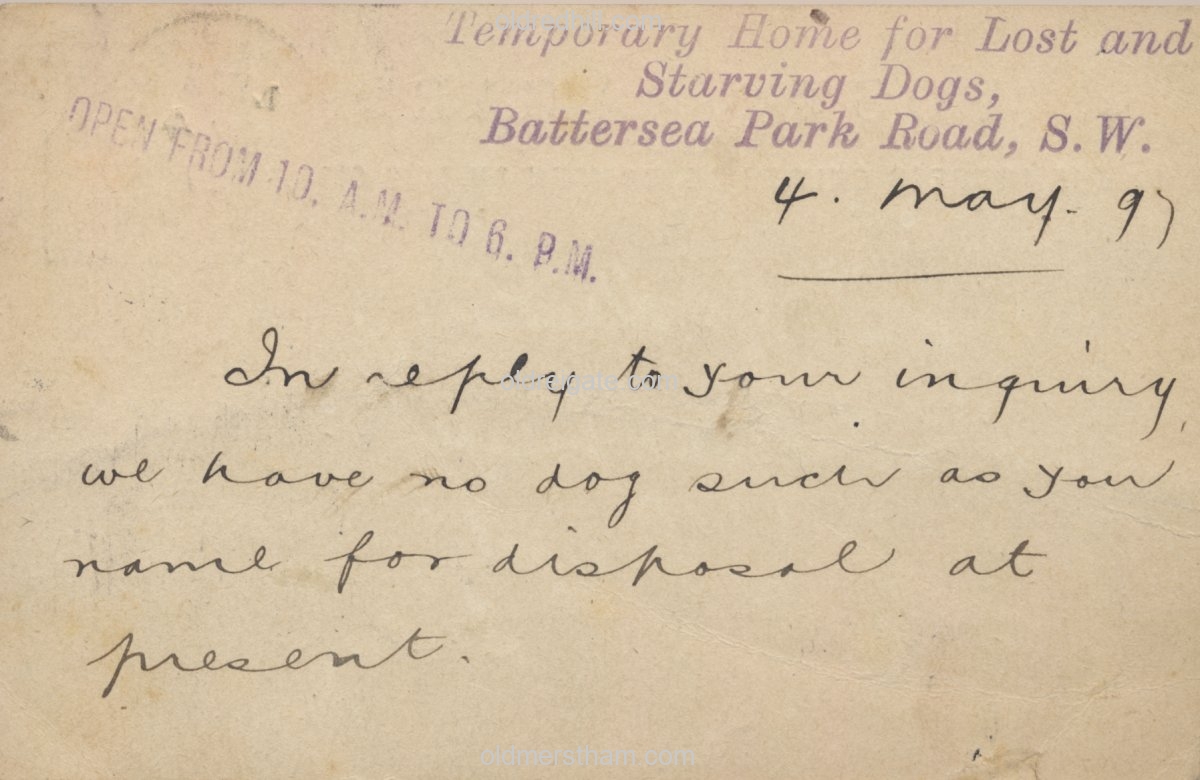 Temporary Home for Lost and
Starving Dogs,
Battersea Park Road, S.W.
OPEN FROM 10. A.M. TO 6. P.M.
4. May. 97
In reply to your inquiry
we have no dog such as you
name for disposal at
present.
oldmerstham.com